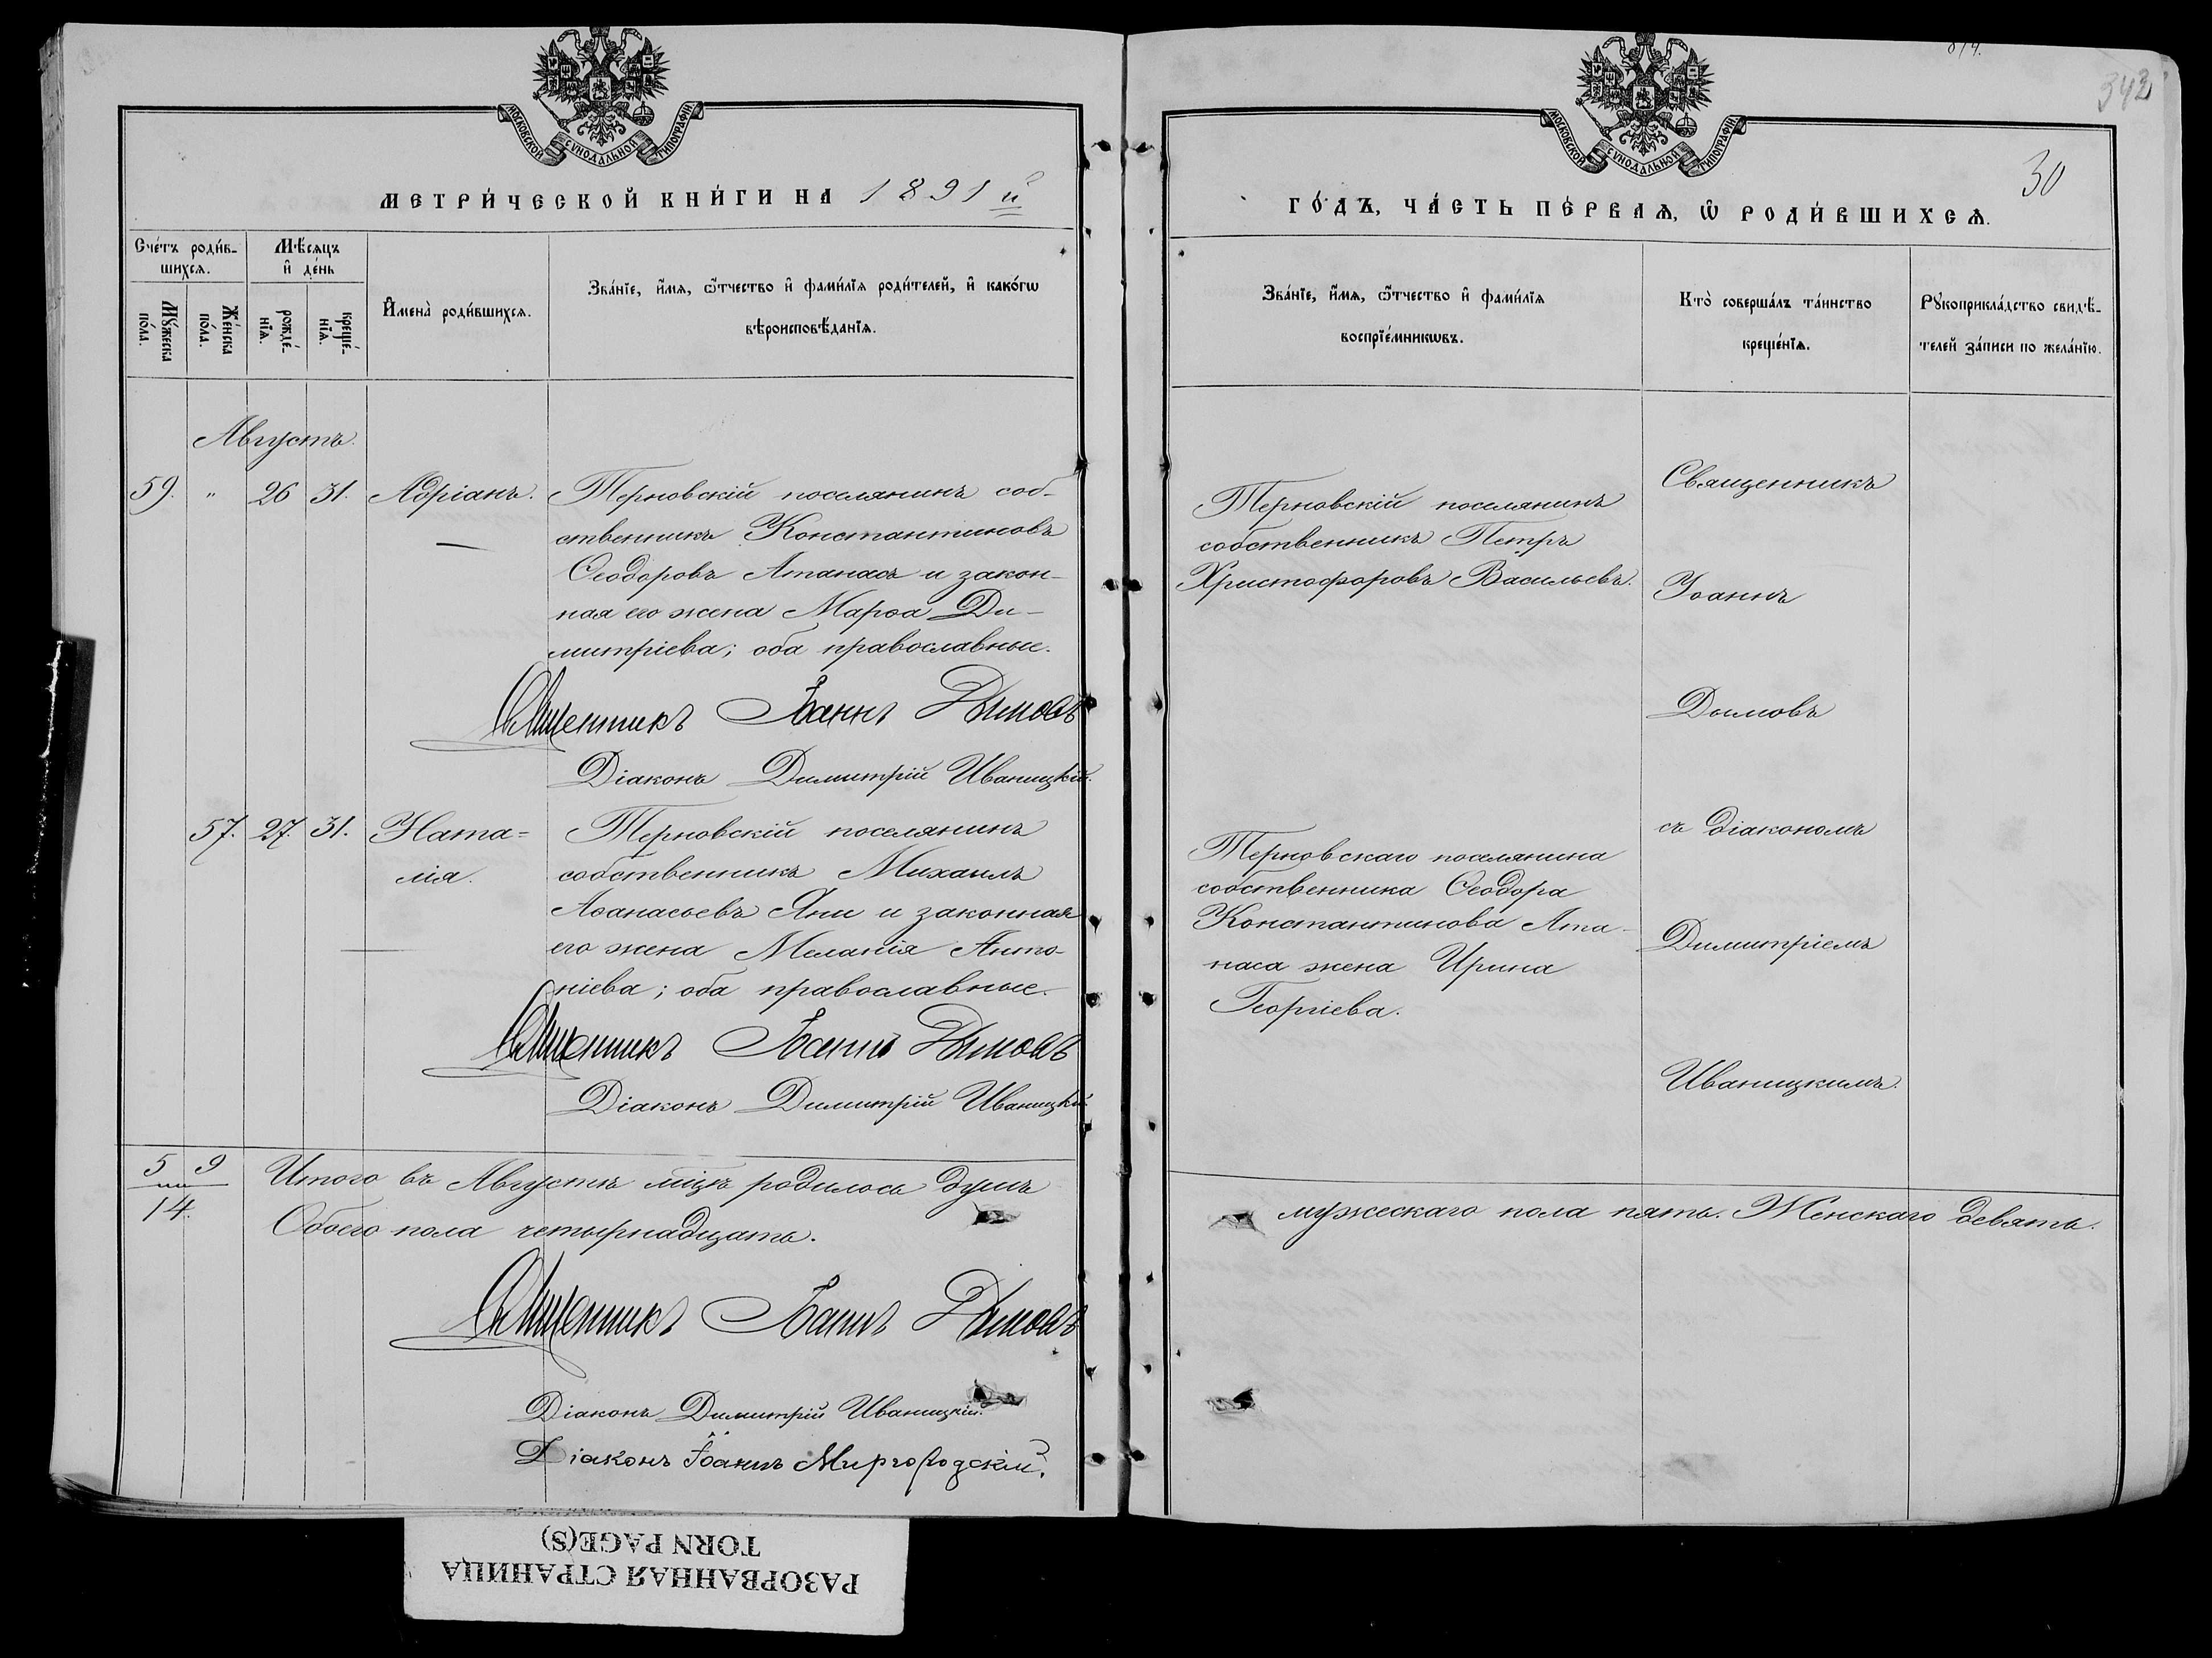 МОСКОВСКОЙ СѴНОДАЛЬНОЙ ТИПОГРАФІИ
МЕТРИ́ЧЕСКОЙ КНИ́ГИ НА 1891й
Сче́тъ роди́в-
шихсѧ.
Мѣ́сѧцъ
и҆ де́нь
И҆мена̀ роди́вшихсѧ.
Зва́нїе, и҆́мѧ, ѻ҆́тчество и҆ фами́лїѧ роди́телей, и҆ како́гѡ
вѣроисповѣ́данїѧ.
Мꙋ́жеска
по́ла.
Же́нска
по́ла.
рожде́-
нїѧ.
креще́-
нїѧ.
Августъ.
59. " 26 31. Адріанъ. Терновскій поселянинъ соб-
ственникъ Константиновъ
Ѳеодоровъ Атанасъ и закон-
ная его жена Марѳа Ди-
митріева; оба православные.
Священникъ Іоаннъ Дымовъ
Діаконъ Димитрій Иваницкій.
57. 27. 31. Ната= Терновскій поселянинъ
лія. собственникъ Михаилъ
Аѳанасьевъ Яни и законная
его жена Меланія Анто-
ніева; оба православные.
Священникъ Іоаннъ Дымовъ
Діаконъ Димитрій Иваницкій
5 9 Итого въ Августѣ мцѣ родилось душъ
14. Обоего пола четырнадцать.
Священникъ Іоаннъ Дымовъ
Діаконъ Димитрій Иваницкій.
Діаконъ Іоаннъ Миргородскій.
342
30
МОСКОВСКОЙ СѴНОДАЛЬНОЙ ТИПОГРАФІИ
ГО́ДЪ, ЧА́СТЬ ПЕ́РВАѦ, Ѡ҆ РОДИ́ВШИХСѦ.
Зва́нїе, и҆́мѧ, ѻ҆́тчество и҆ фами́лїѧ
воспрїе́мникѡвъ.
Кто̀ соверша́лъ та́инство
креще́нїѧ.
Рꙋкоприкла́дство свидѣ́-
телей за́писи по жела́нїю.
Терновскій поселянинъ
собственникъ Петръ
Христофоровъ Васильевъ.
Терновскаго поселянина
собственника Ѳеодора
Константинова Ата-
наса жена Ирина
Георгіева.
Священникъ
Іоаннъ
Дымовъ
съ діакономъ
Димитріемъ
Иваницкимъ.
мужескаго пола пять. Женскаго девять.
РАЗОРВАННАЯ СТРАНИЦА
TORN PAGE(S)